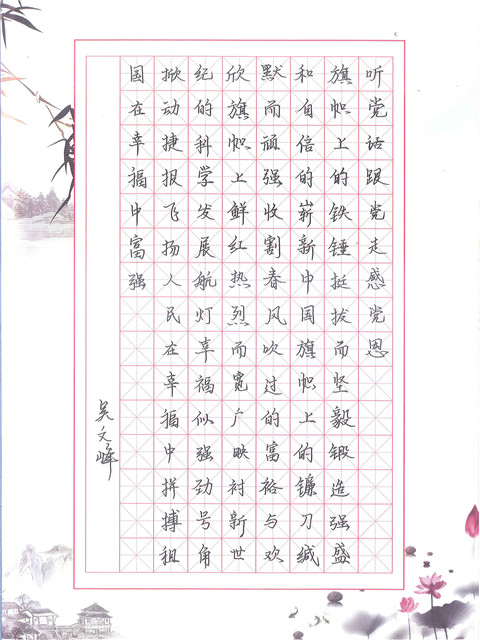 听党话跟党走感党恩
旗帜上的铁锤挺拔而坚毅锻造强盛
和自信的崭新中国旗帜上的镰刀缄
默而顽强收割春风吹过的富裕与欢
欣旗帜上鲜红热烈而宽广映衬新世
纪的科学发展航灯幸福似强劲号角
掀动捷报飞扬人民在幸福中拼搏祖
国在幸福中富强
吴文峰